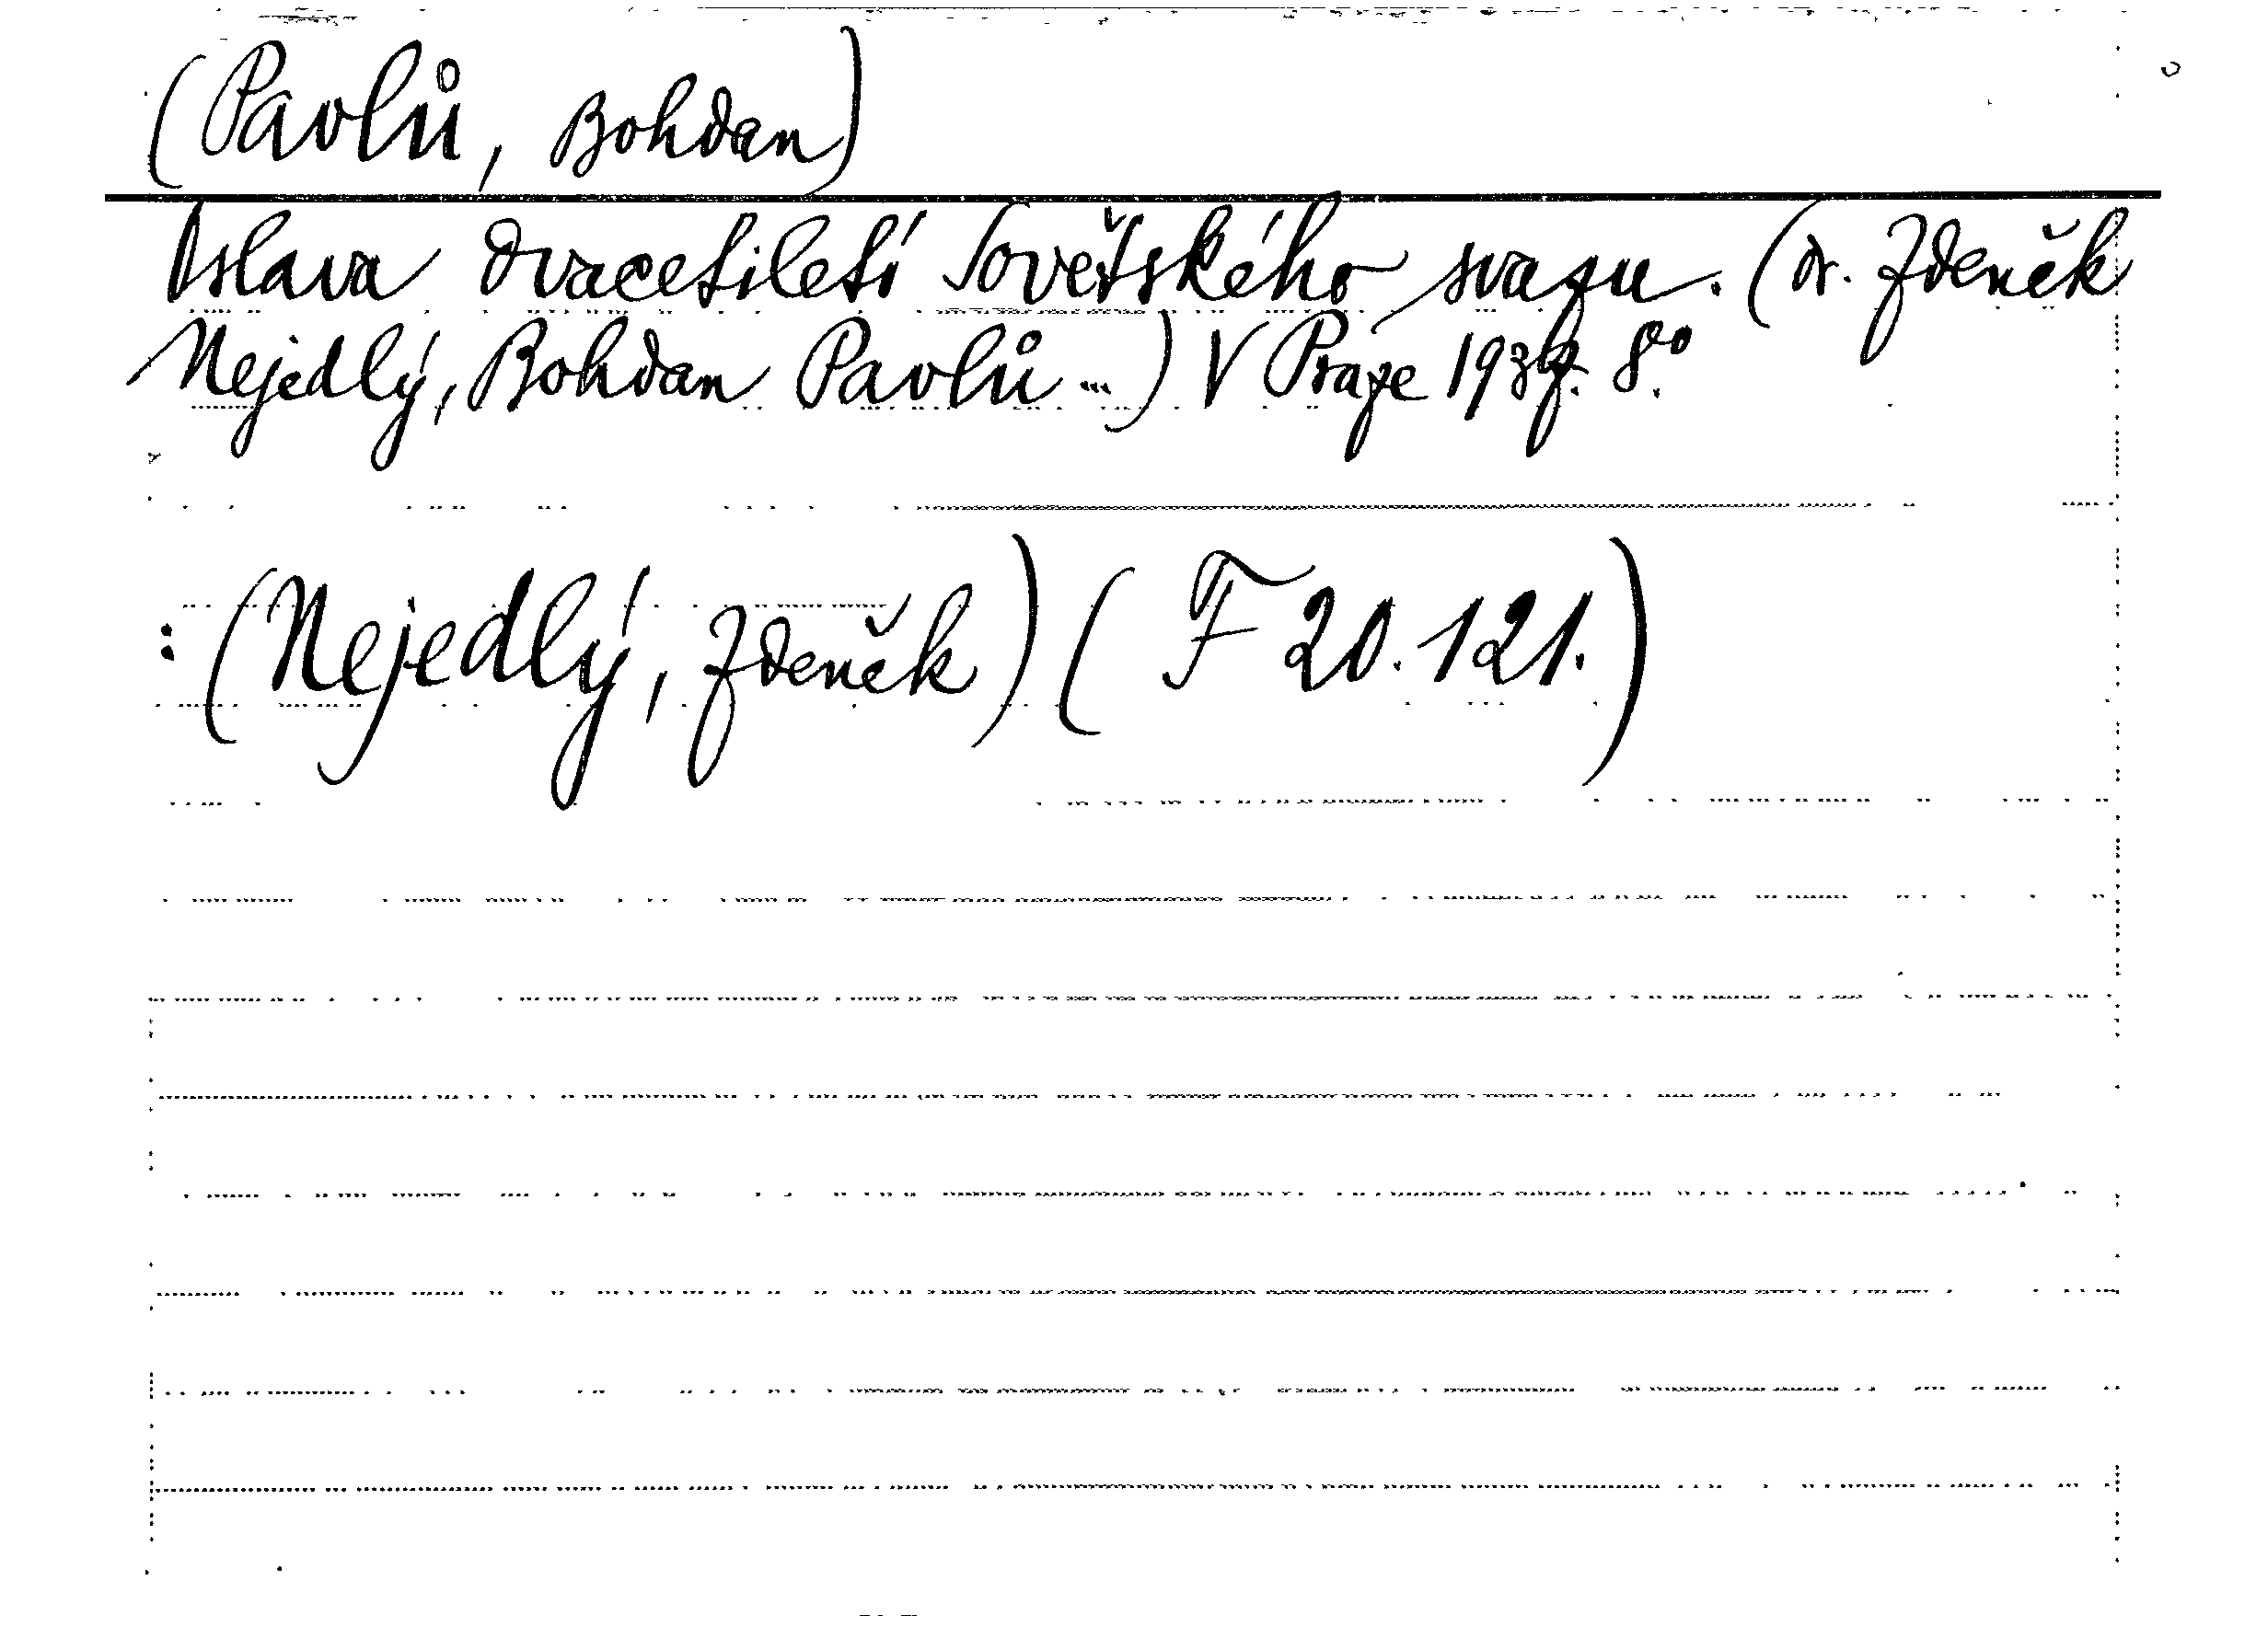 (Pavlů, Bohdan)
Oslava dvacetiletí Sovětského svazu. (dr. Zdeněk
Nejedlý, Bohdan Pavlů ...) V Praze 1937. 8°.
: (Nejedlý, Zdeněk) ( F 20.121.)